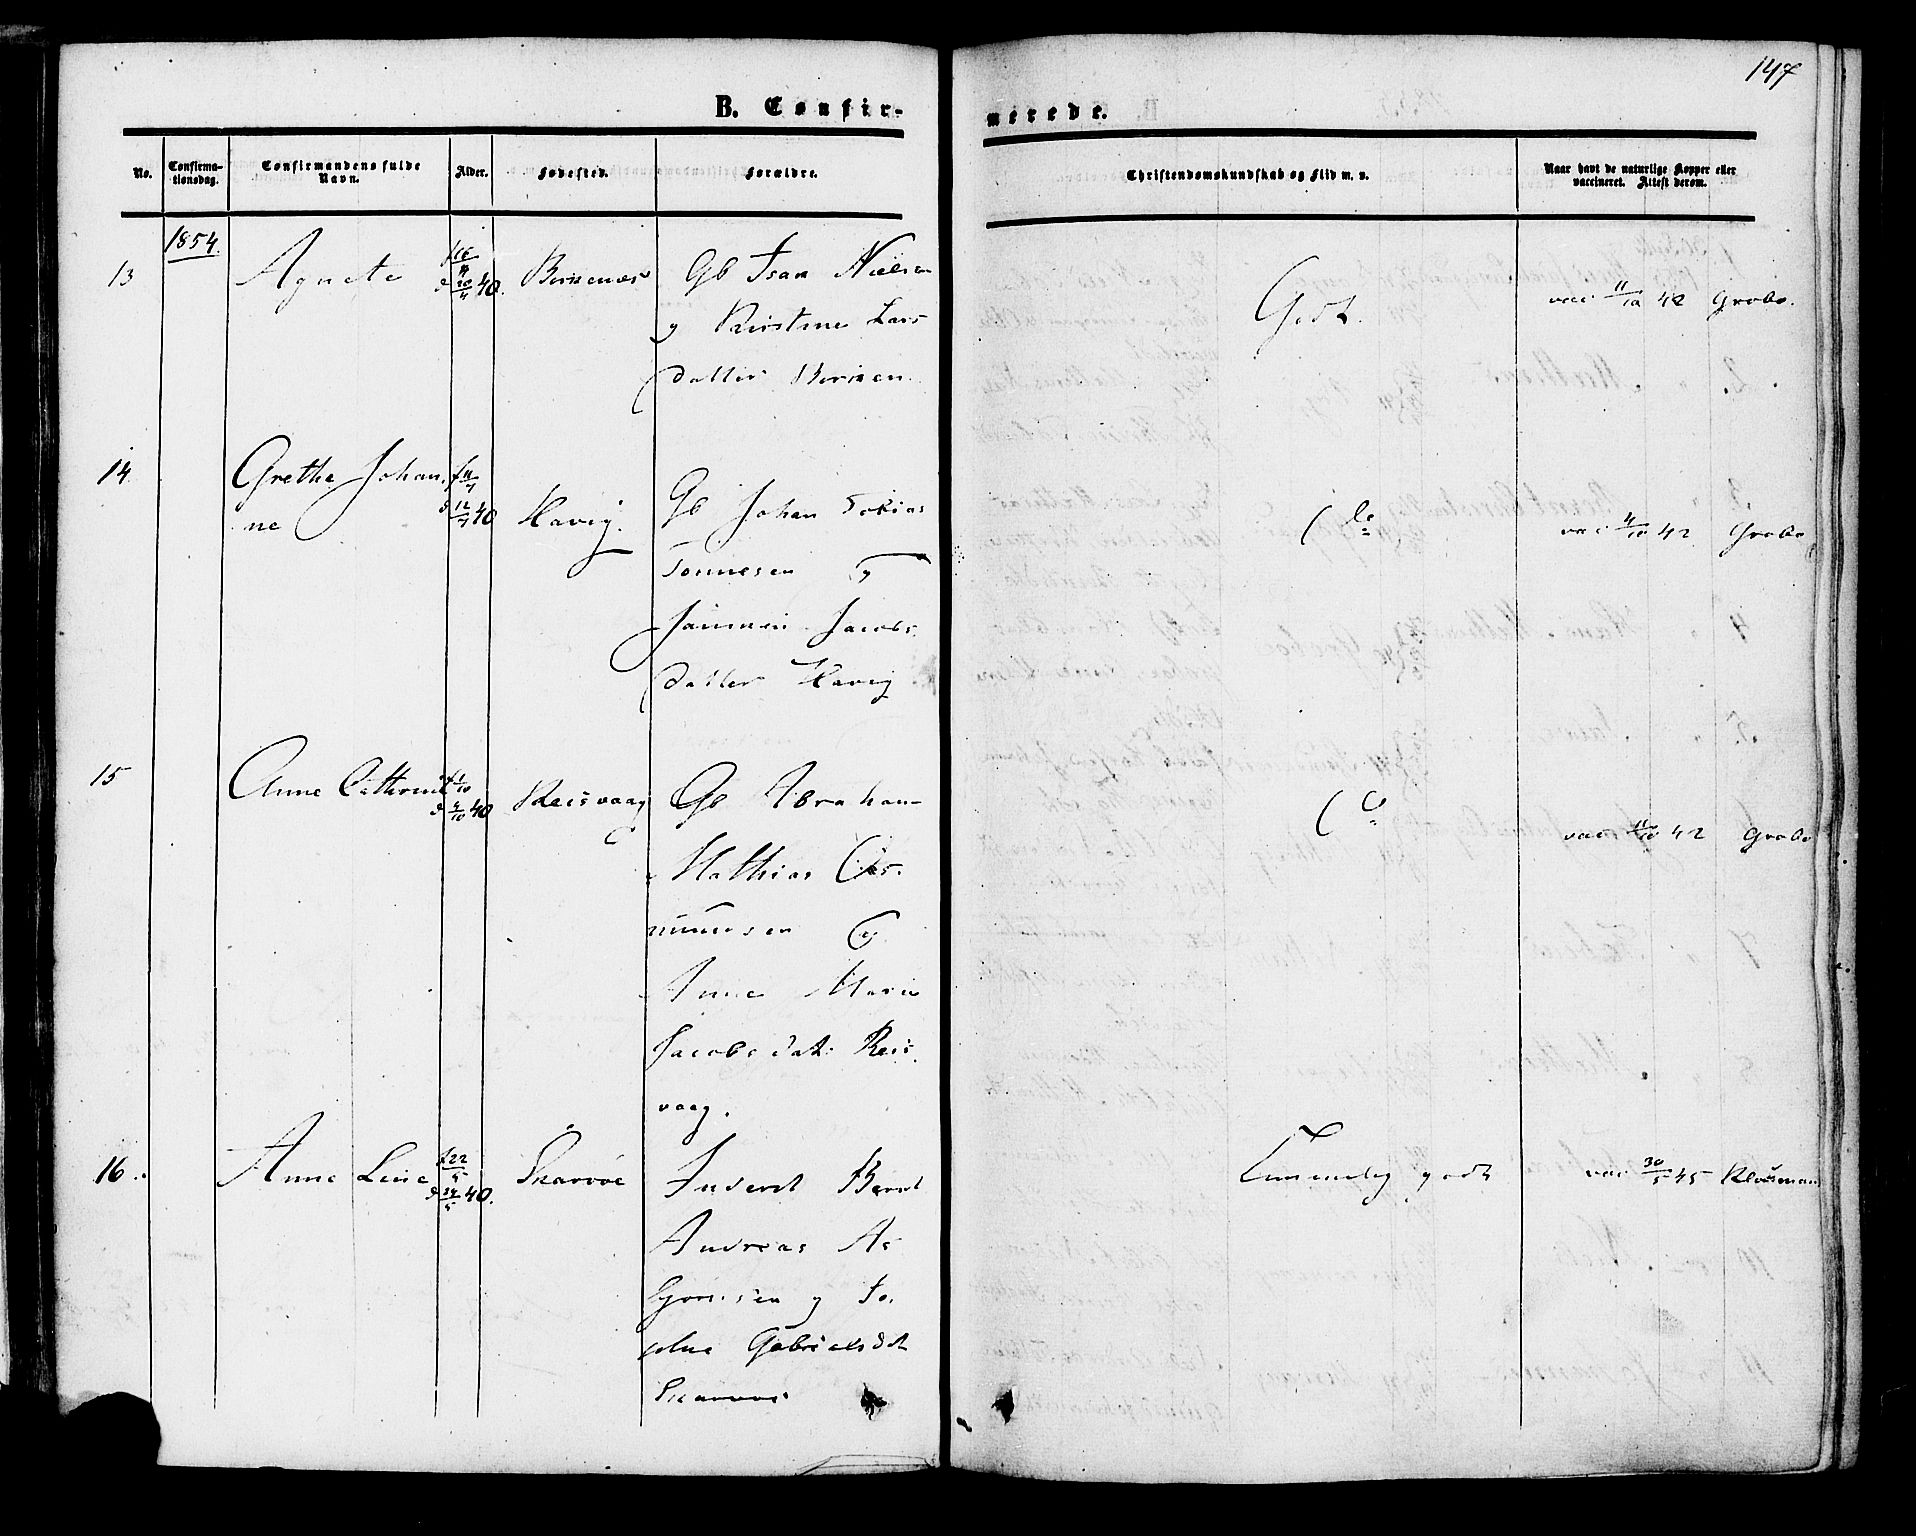 147
B. Confir-
merede.
No.
Confirma-
tionsdag.
Confirmandens fulde
Navn.
Alder.
Fødested.
Forældre.
Christendomskundskab og Flid m. v.
Naar havt de naturlige Kopper eller
vaccineret. Attest derom.
1854.
13
Agnete
f 16/4
d 20/4 40.
Gb Isak Nielsen
og Kirstine Lars
datter
Godt.
vac 11/10 42 Grabo.
14
Grethe Johan-
ne
f 11/7
d 12/7 40
Havig.
Gb Johan Tobias
Tønnesen og
Jacobs
datter Havig
do
vac 4/10 42 Grabo
15
Anne Cathrine
f 1/10
d 4/10 40
Reisvaag
Gb Abraham
Mathias Os-
mundsen og
Anne Marie
Jacobsdat: Reis-
vaag.
do
vac 11/10 42 Grabo
16.
Anne Line
f 22/5
d 24/5 40.
Skarvøe
Inderst Bernt
Andreas As-
bjørnsen og Jo-
sphine Gabrielsdt
Skarvøe
Temmelig godt
vac 30/5 45 Klousman